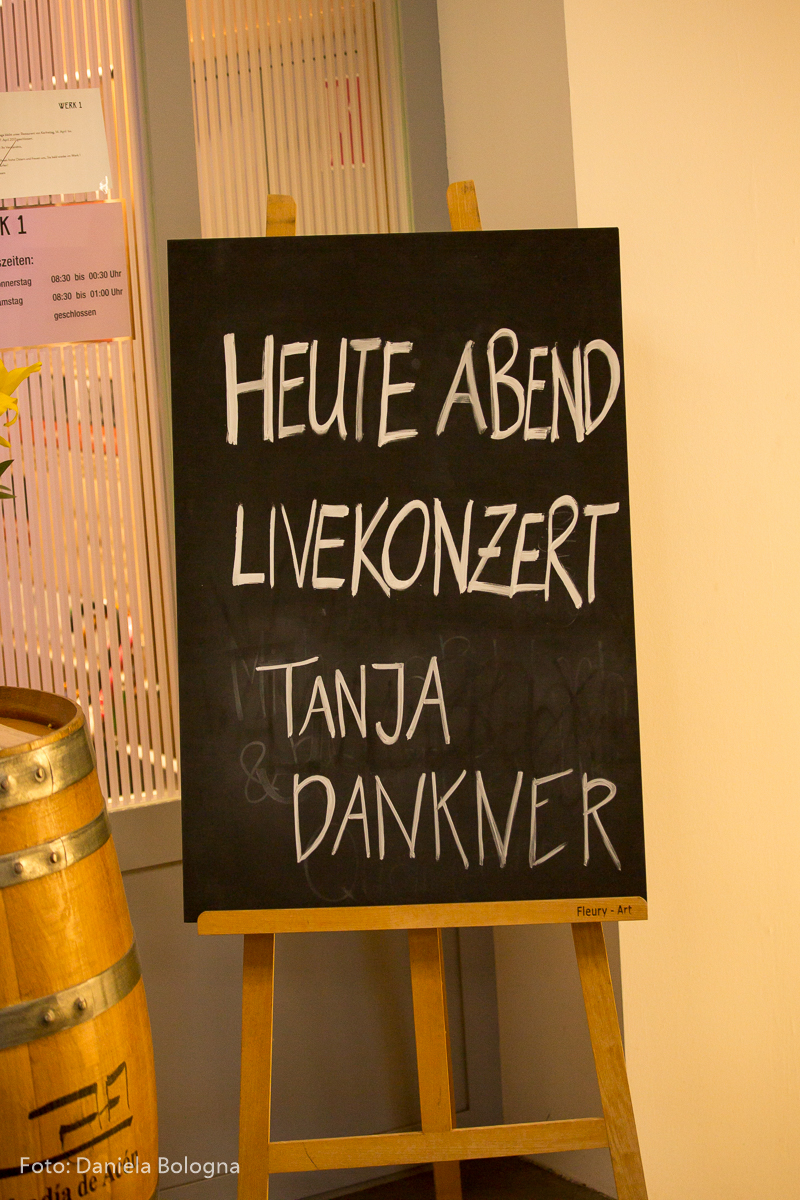 WERK 1
K 1
szeiten:
nnerstag 08:30 bis 00:30 Uhr
amstag 08:30 bis 01:00 Uhr
geschlossen
HEUTE ABEND
LIVEKONZERT
TANJA
&
DANKNER
Fleury - Art
Foto: Daniela Bologna